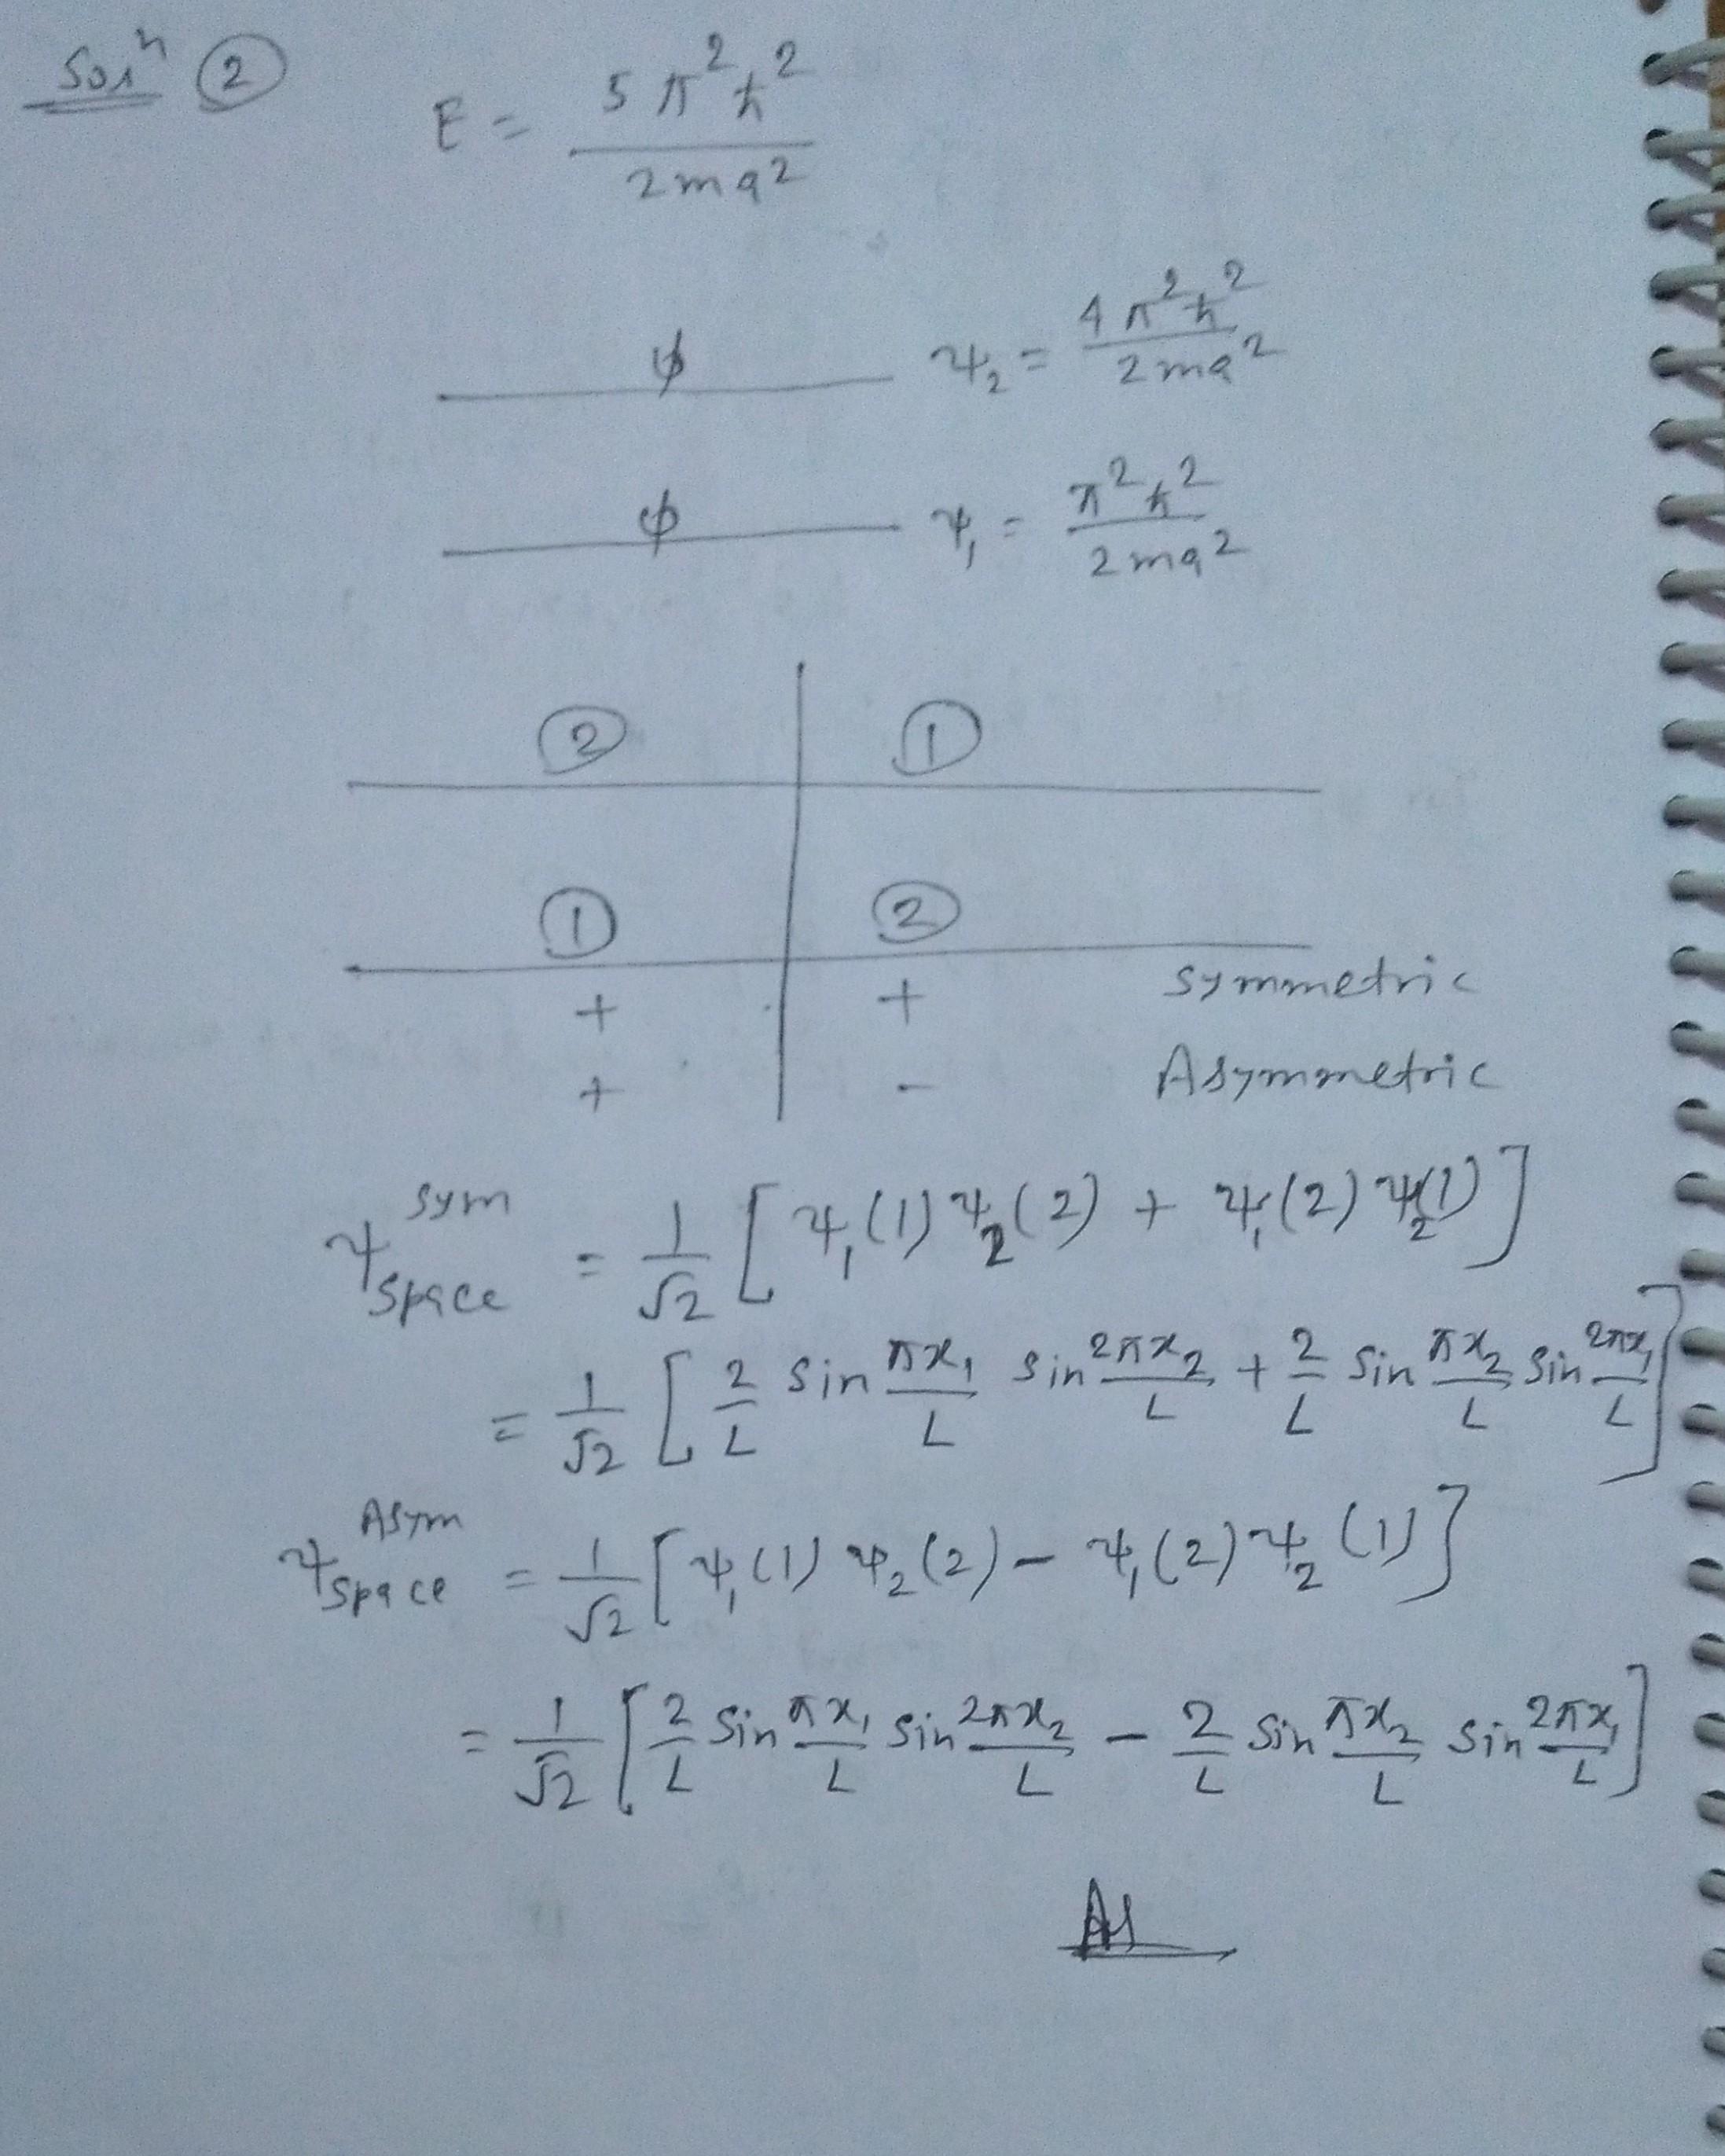 Solⁿ ②
E = 5π²ħ² / 2ma²
ψ₂ = 4π²ħ² / 2ma²
ψ₁ = π²ħ² / 2ma²
② ①
① ②
+ + symmetric
+ - Asymmetric
ψ_space^sym = 1/√2 [ψ₁(1) ψ₂(2) + ψ₁(2) ψ₂(1)]
= 1/√2 [2/L sin πx₁/L sin 2πx₂/L + 2/L sin πx₂/L sin 2πx₁/L]
ψ_space^Asym = 1/√2 [ψ₁(1) ψ₂(2) - ψ₁(2) ψ₂(1)]
= 1/√2 [2/L sin πx₁/L sin 2πx₂/L - 2/L sin πx₂/L sin 2πx₁/L]